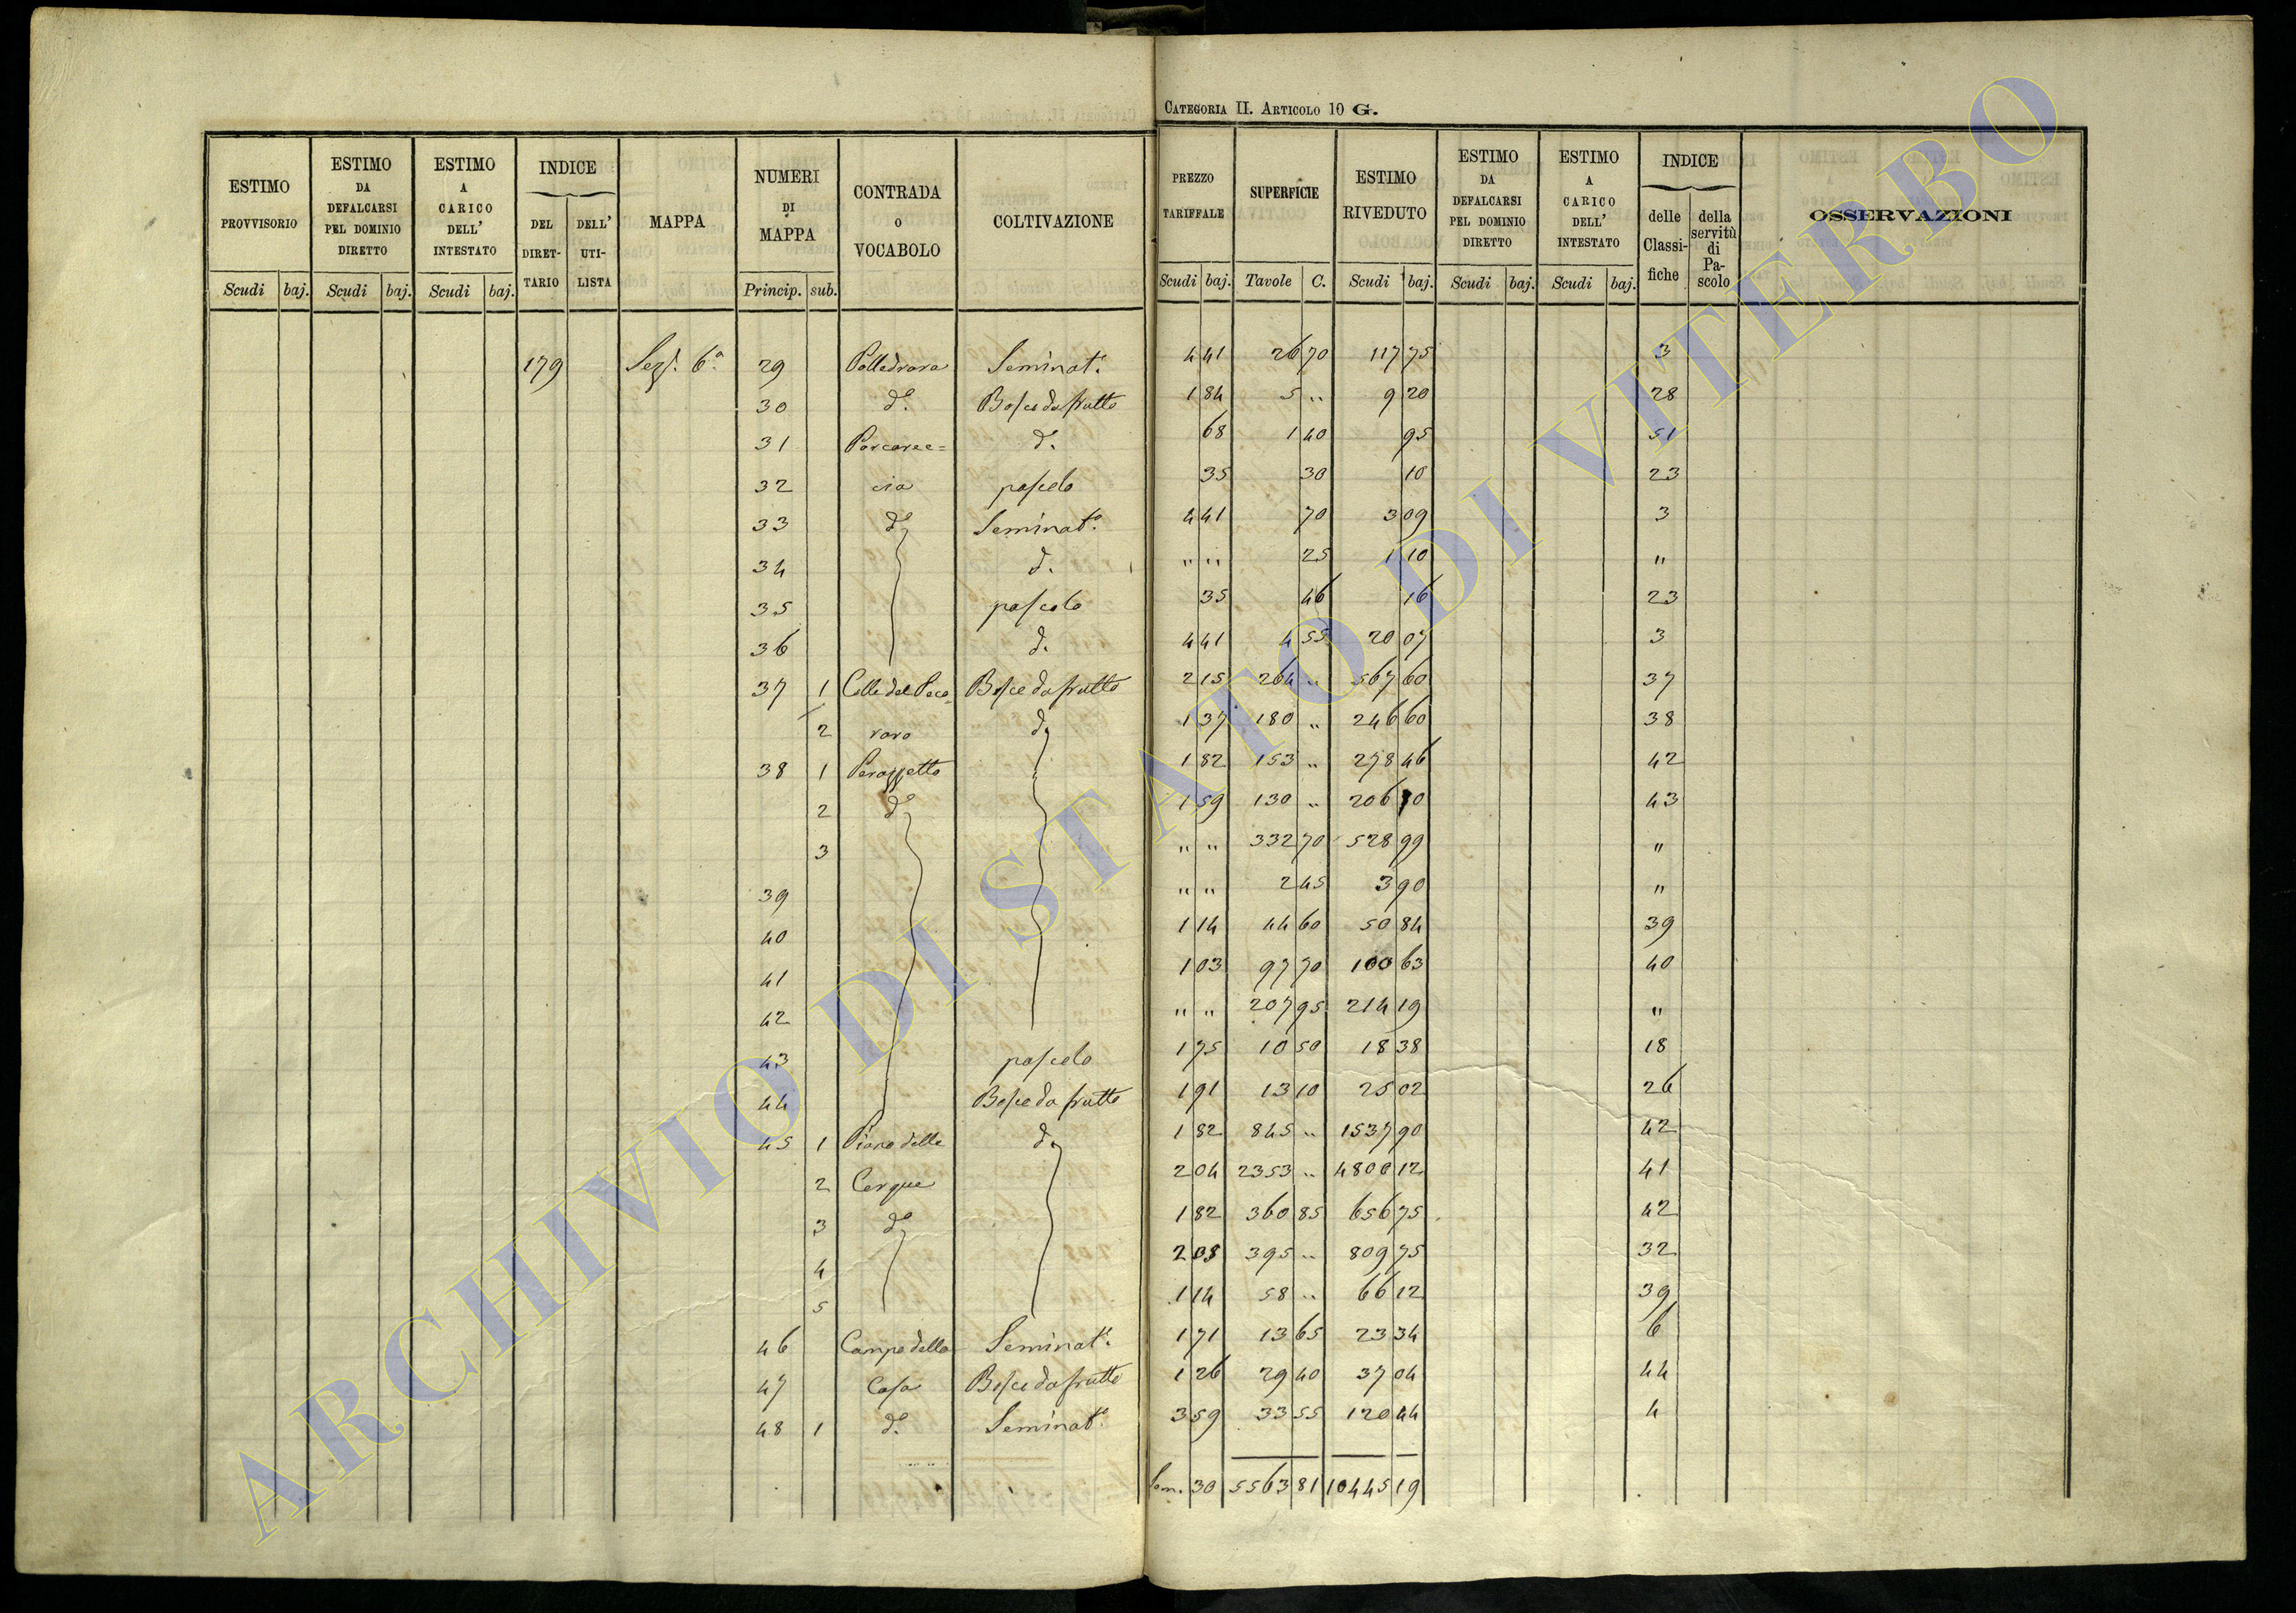 CATEGORIA II. ARTICOLO 10 G.
ESTIMO PROVVISORIO Scudi baj.
ESTIMO DA DEFALCARSI PEL DOMINIO DIRETTO Scudi baj.
ESTIMO A CARICO DELL' INTESTATO Scudi baj.
INDICE DEL DIRET-TARIO DELL' UTI-LISTA
MAPPA
NUMERI DI MAPPA Princip. sub.
CONTRADA O VOCABOLO
COLTIVAZIONE
PREZZO TARIFFALE Scudi baj.
SUPERFICIE Tavole C.
ESTIMO RIVEDUTO Scudi baj.
ESTIMO DA DEFALCARSI PEL DOMINIO DIRETTO Scudi baj.
ESTIMO A CARICO DELL' INTESTATO Scudi baj.
INDICE delle Classi-fiche della servitù di Pa-scolo
OSSERVAZIONI
179 Sez. 6a 29 Polledrara Seminato. 4 41 26 70 117 75 3
30 do. Bosco da frutto 1 84 5 .. 9 20 28
31 Porcarec= do. 68 1 40 95 51
32 cia pascolo 35 30 10 23
33 do Seminato. 4 41 70 3 09 3
34 do. " " 25 1 10 "
35 pascolo 35 46 16 23
36 do. 4 41 4 55 20 07 3
37 1 Colle del Peco= Bosco da frutto 2 15 264 .. 567 60 37
2 raro do 1 37 180 .. 246 60 38
38 1 Perazzetto 1 82 153 .. 278 46 42
2 do 1 59 130 .. 206 70 43
3 " " 332 70 528 99 "
39 " " 2 45 3 90 "
40 1 14 44 60 50 84 39
41 1 03 97 70 100 63 40
42 " " 207 95 214 19 "
43 pascolo 1 75 10 50 18 38 18
44 Bosco da frutto 1 91 13 10 25 02 26
45 1 Piano delle do 1 82 845 .. 1537 90 42
2 Cerque 2 04 2353 .. 4800 12 41
3 do 1 82 360 85 656 75 42
4 2 05 395 .. 809 75 32
5 1 14 58 .. 66 12 39
46 Campo della Seminato. 1 71 13 65 23 34 6
47 Casa Bosco da frutto 1 26 29 40 37 04 44
48 1 do. Seminato. 3 59 33 55 120 44 4
Som. 30 5563 81 10445 19
ARCHIVIO DI STATO DI VITERBO